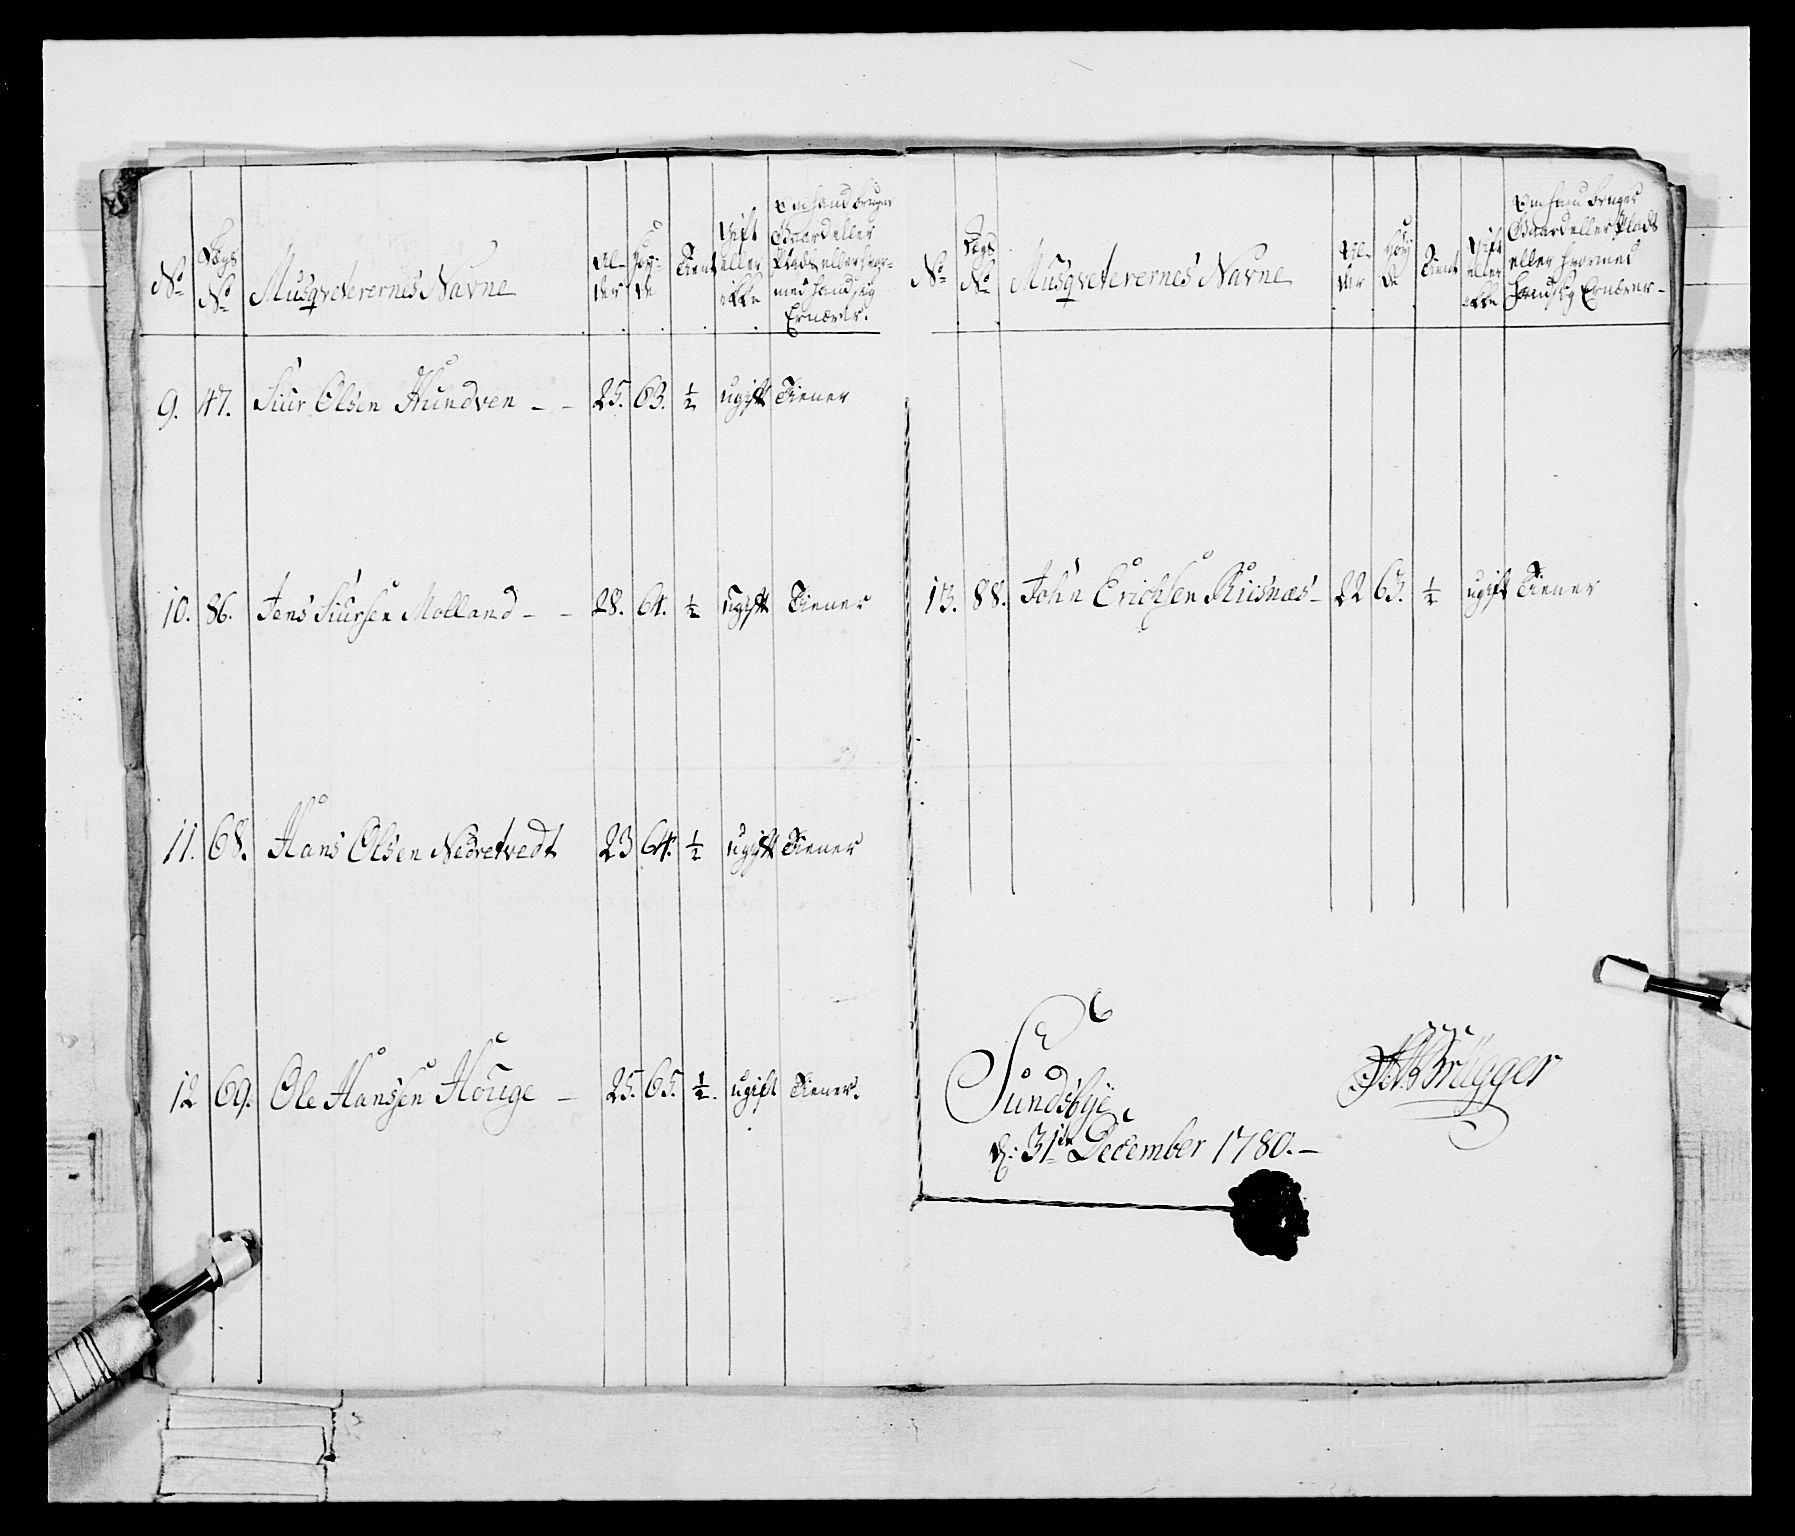 No
Lægs No
Musqveterernes Navne
Al-
der
Høy-
de
Tient
Gift
eller
ikke
Om hand bruger
Gaard eller
Plads eller hvor-
med hand sig
Ernærer.
9. 47. Siur Olsen Hundven - - 25. 63. ½ ugift Tiener
10. 86. Jens Siursen Molland - - 28. 64. ½ Ugift Tiener
11. 68. Hans Olsen Nedretvedt 23 64. ½ ugift Tiener
12 69. Ole Hansen Houge - 25. 65. ½. ugift Tiener.
No
Lægs
No
Musqveterernes Navne
Al-
der
Høy
de
Tient
Gift
eller
ikke
Om hand bruger
Gaard eller Plads
eller hvormed
hand sig Ernærer -
13. 88. John Erichsen Riisnæs - 22 63. ½ ugift Tiener
Sundsbye
d: 31te December 1780. -
Brügger